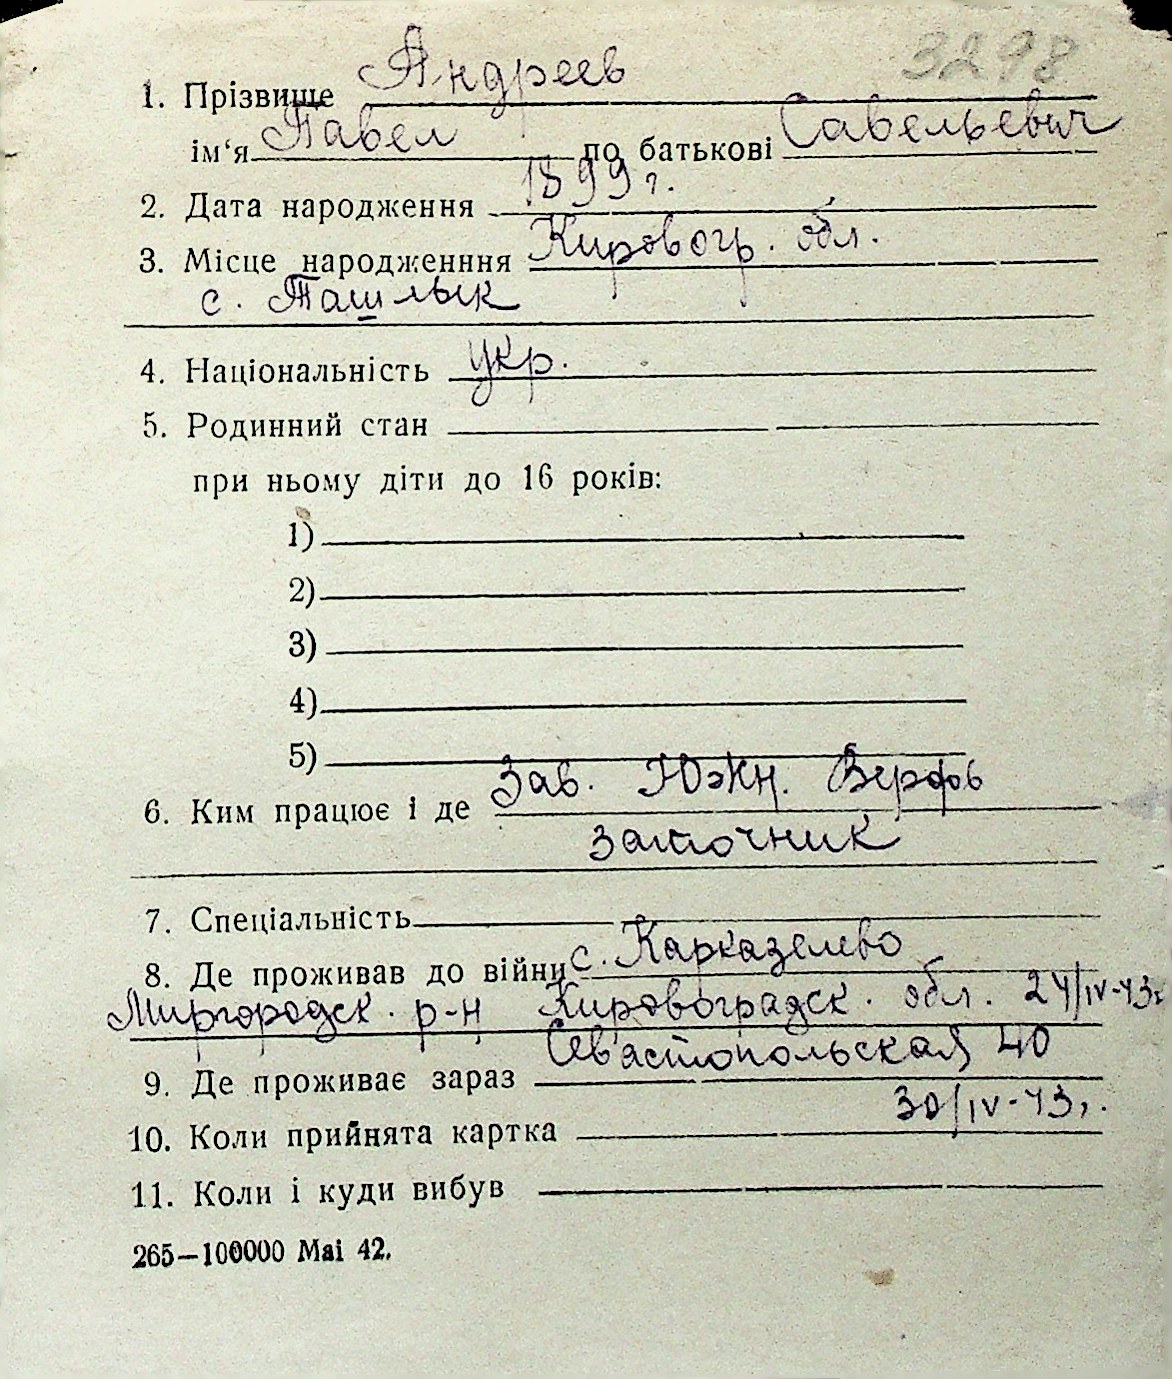 3298
1. Прізвище Андреев
ім‘я Павел по батькові Савельевич
2. Дата народження 1899 г.
3. Місце народженння Кировогр. обл.
с. Ташлык
4. Національність укр.
5. Родинний стан
при ньому діти до 16 років:
1)
2)
3)
4)
5)
6. Ким працює і де Зав. Южн. Верфь
заточник
7. Спеціальність
8. Де проживав до війни с. Карказелево
Миргородск. р-н Кировоградск. обл. 24/IV-43г
9. Де проживає зараз Севастопольская 40
10. Коли прийнята картка 30/IV-43г.
11. Коли і куди вибув
265—100000 Mai 42.